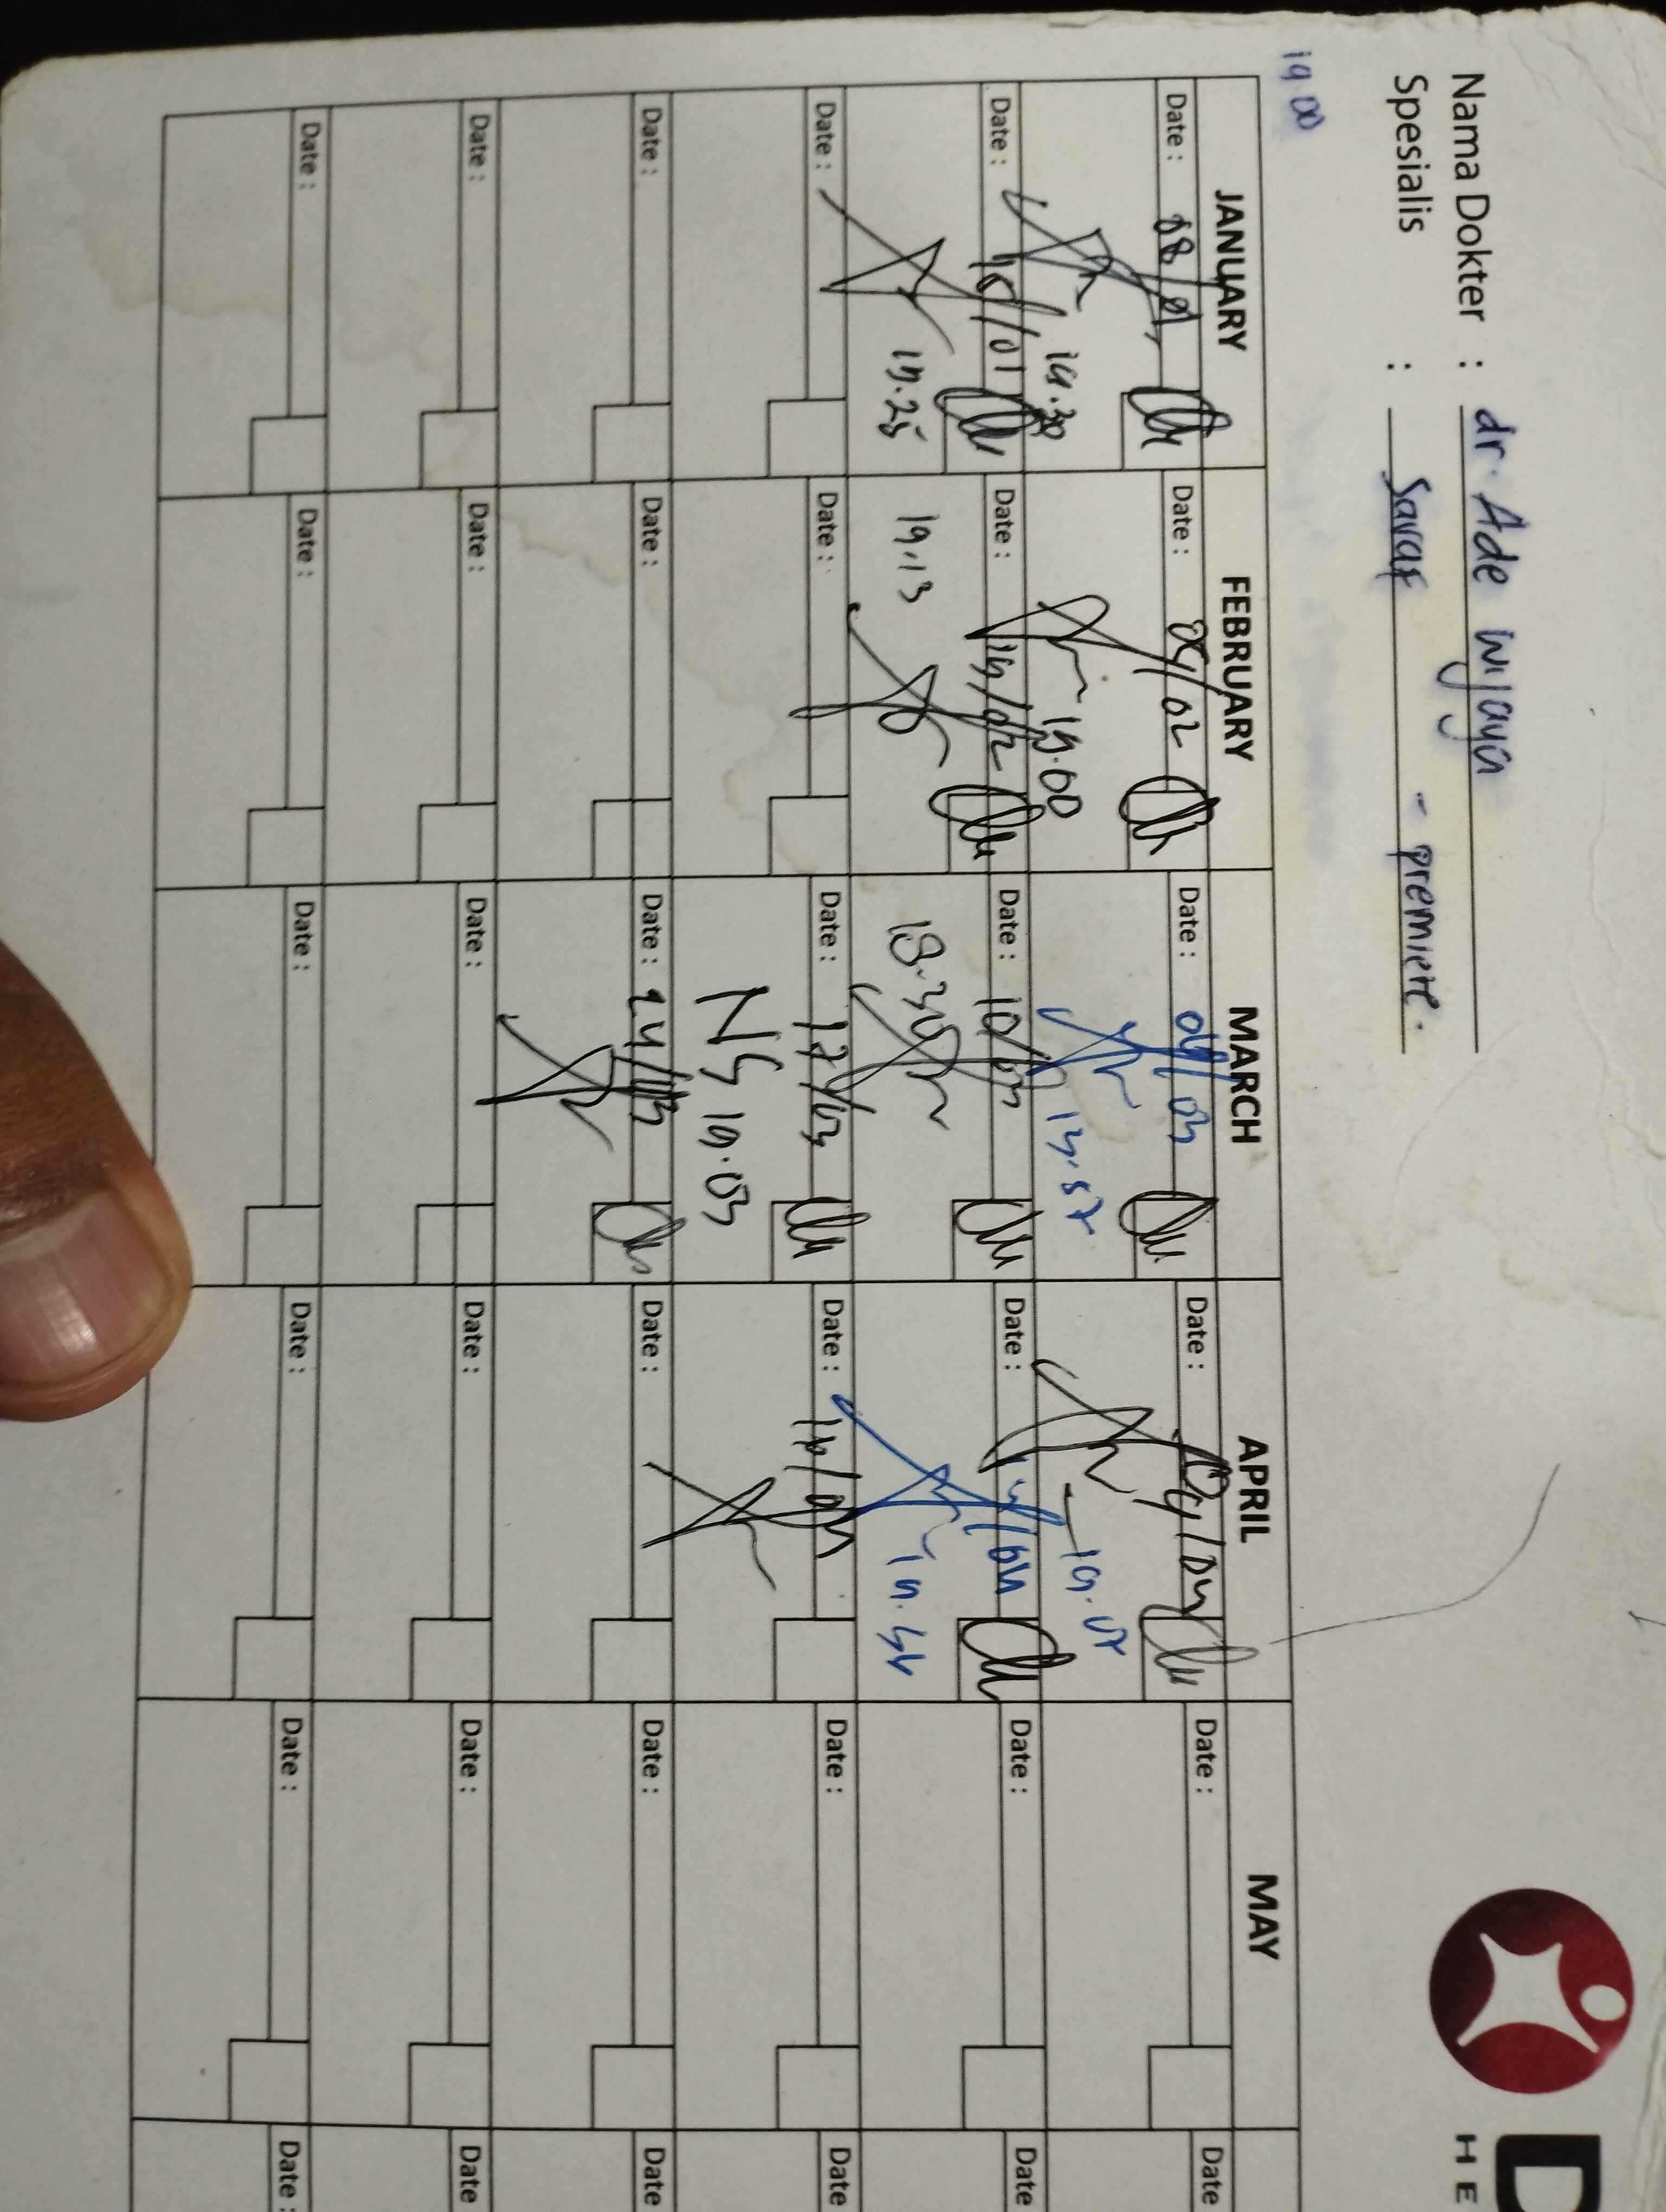 Nama Dokter : dr. Ade wijaya
Spesialis : Saraf - premiere.
19.00
D
HE
JANUARY FEBRUARY MARCH APRIL MAY
Date : 08/01 Date : 04/02 Date : 04/03 Date : 04/04 Date : Date
19.30 19.00 13.57 19.07
Date : 15/01 Date : 19/02 Date : 10/03 Date : Date : Date
19.25 19.13 18.30
Date : Date : Date : 17/03 Date : 16/04 Date : Date
NS 19.03
Date : Date : Date : 24/03 Date : Date : Date
Date : Date : Date : Date : Date : Date
Date : Date : Date : Date : Date : Date :